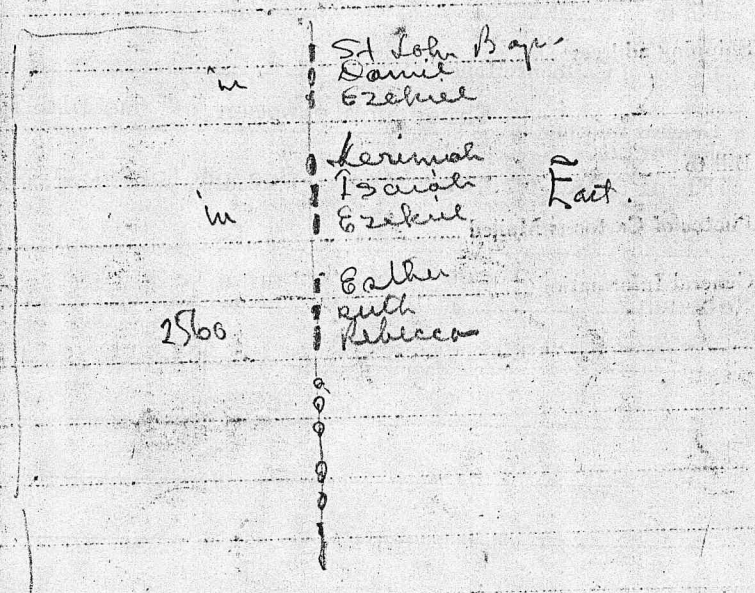 St John Bap.
in Daniel
Ezekiel
Jerimiah
Isaiah East.
in Ezekiel
Esther
Ruth
2560 Rebecca